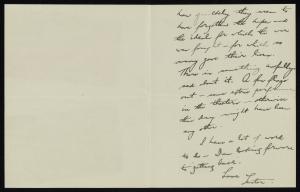 how quickly they seem to
have forgotten the hopes and
the ideal for which the war
was fought - for which so
many gave their lives.
There is something awfully
sad about it. A few flags
out - some extra
in the theatres - otherwise
this day might have been
any other.
I have a lot of work
to do - I am looking forward
to getting back.
Love